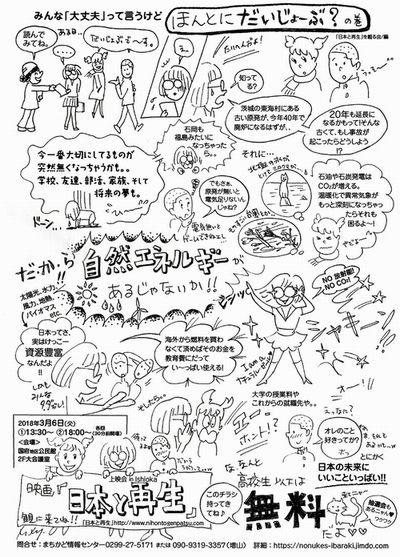 みんな「大丈夫」って言うけど
ほんとに だいじょーぶ？の巻
「日本と再生」を観る会/編
読んで
みてね。
だいじょぶで〜す。
たいへんよお！
知ってる？
茨城の東海村にある
古い原発が、今年40年で
廃炉になるはずが、
20年も延長に
なるかもって！そんな
古くて、もし事故が
起こったらどうしよう
！？
石岡も
福島みたいに
なっちゃったら。
今一番大切にしてるものが
突然無くなっちゃうかも。
学校、友達、部活、家族、そして
将来の夢も。
ドーン
それに…
でもさぁ、
原発が無いと
電気足りないん
じゃね？
石油や石炭発電は
CO₂が増える。
温暖化で異常気象が
もっと深刻になっちゃっ
たらそれも
困るよ〜！
だ・か・ら
自然エネルギーが
あるじゃないか!!
太陽光、水力
風力、地熱、
バイオマス
etc.
NO 放射能！
NO CO₂！
日本ってさ、
実はけっこー
資源豊富
なんだよ
!!
海外から燃料を買わ
なくて済めばそのお金を
教育費にだって
い〜っぱい使える！
I am a
大学の授業料や
これからの就職先や。
エー！
ホント！？
オレのこと
好きってか？
とにかく
日本の未来に
いいこといっぱい!!
2018年3月6日(火)
①13:30〜 ②18:00〜 各回(30分前開場)
<会場>
国府地区公民館
2F大会議室
上映会 in Ishioka
映画『日本と再生』
観に来てね!!
「日本と再生」http://www.nihontogenpatsu.com
このチラシ
持ってきてね♪
な、なんと
高校生以下は
無料
だよ♡
抽選会も
あるニャ！
ワクワク
問合せ：まちかど情報センター0299-27-5171 または 090-9319-3357(増山) 詳細：https://nonukes-ibaraki.jimdo.com